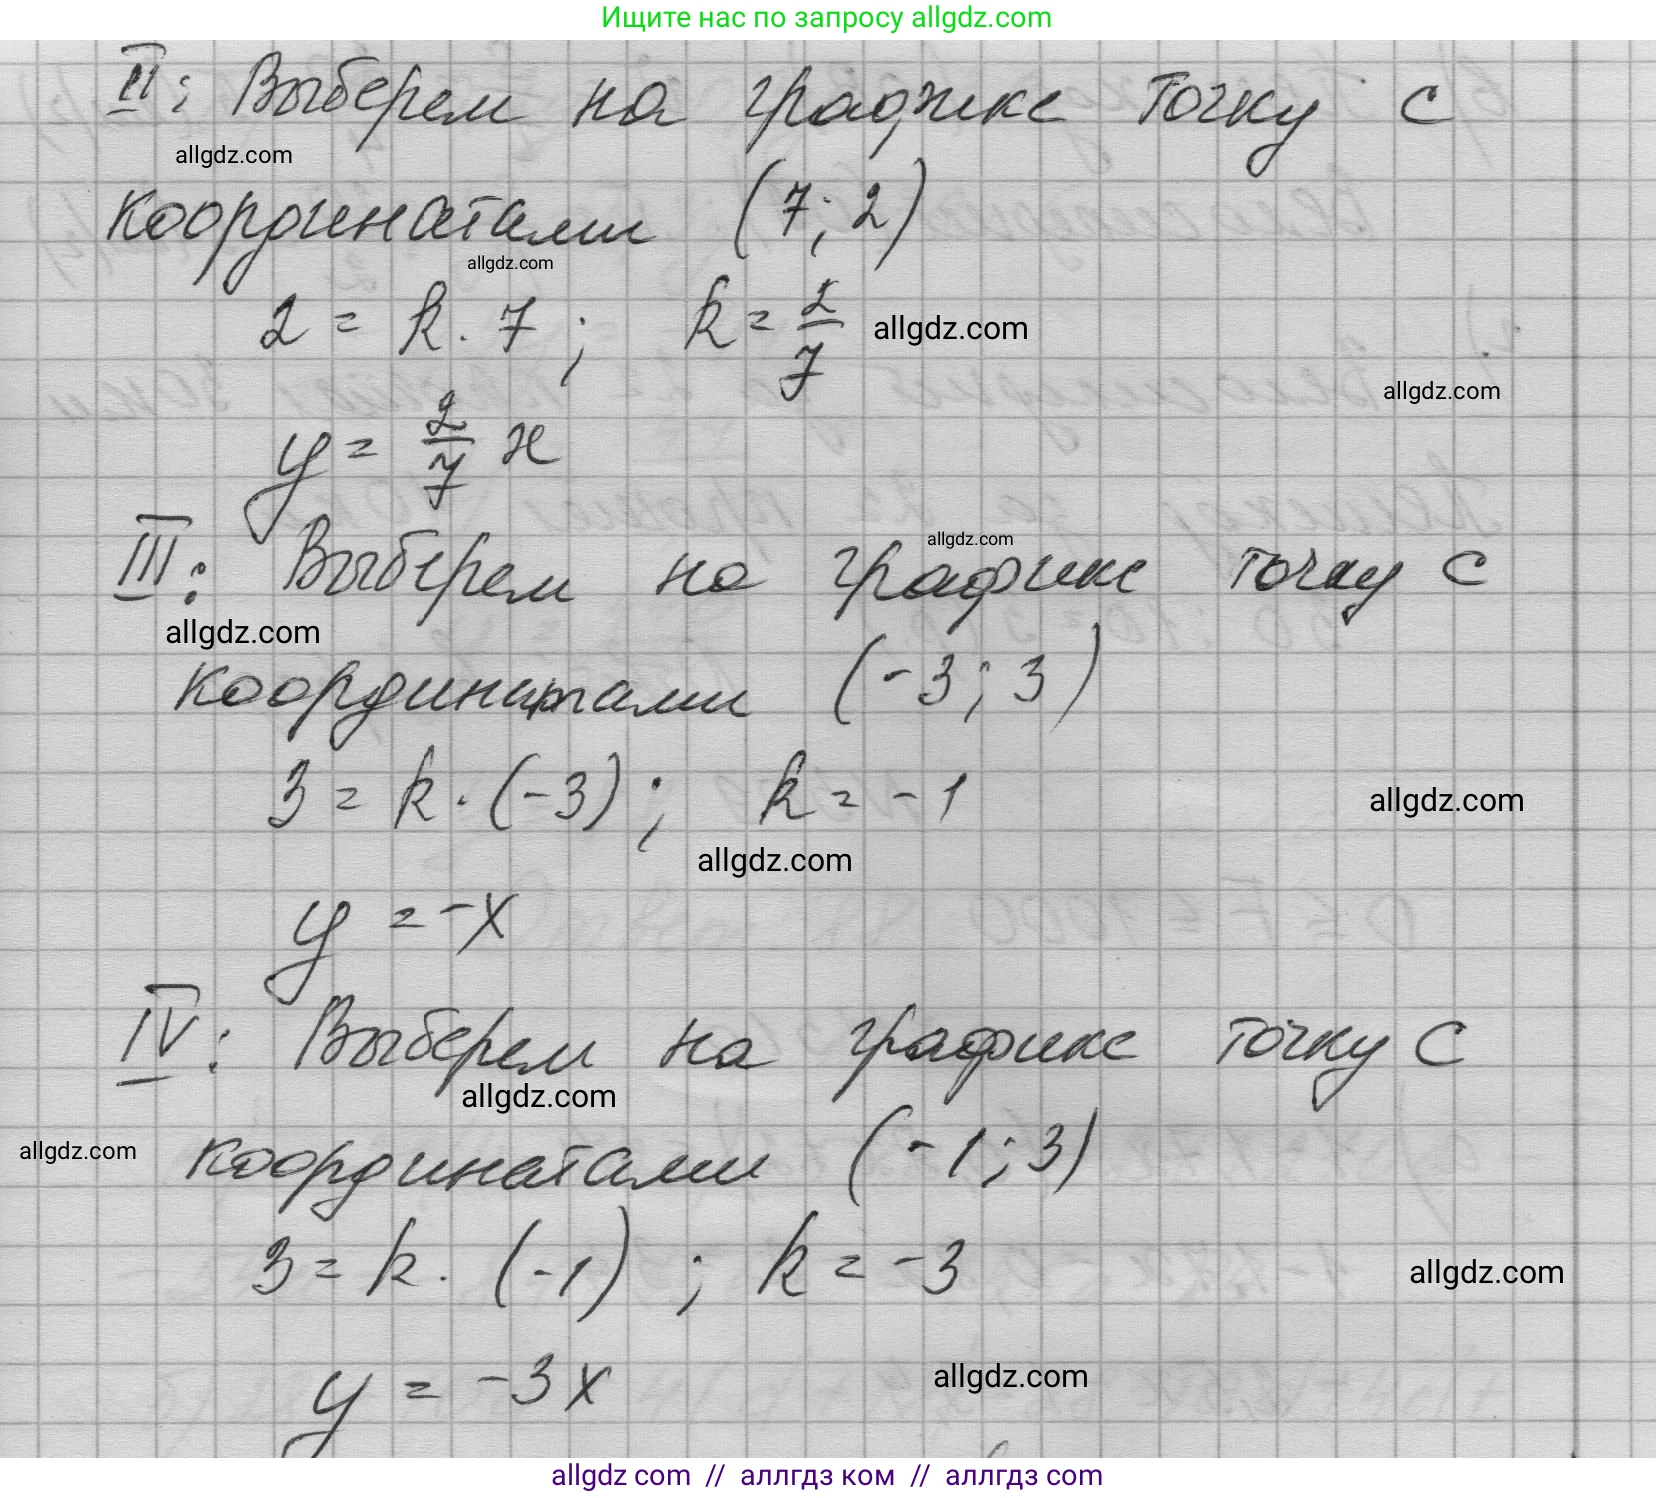 Ищите нас по запросу allgdz.com
II: Выберем на графике точку с
allgdz.com
координатами (7; 2)
allgdz.com
2 = k · 7 ; k = 2/7 allgdz.com
allgdz.com
y = 2/7 x
allgdz.com
III: Выберем на графике точку с
allgdz.com
координатами (-3; 3)
3 = k · (-3) ; k = -1 allgdz.com
allgdz.com
y = -x
IV: Выберем на графике точку с
allgdz.com
allgdz.com координатами (-1; 3)
3 = k · (-1) ; k = -3 allgdz.com
y = -3x allgdz.com
allgdz com // аллгдз ком // аллгдз com